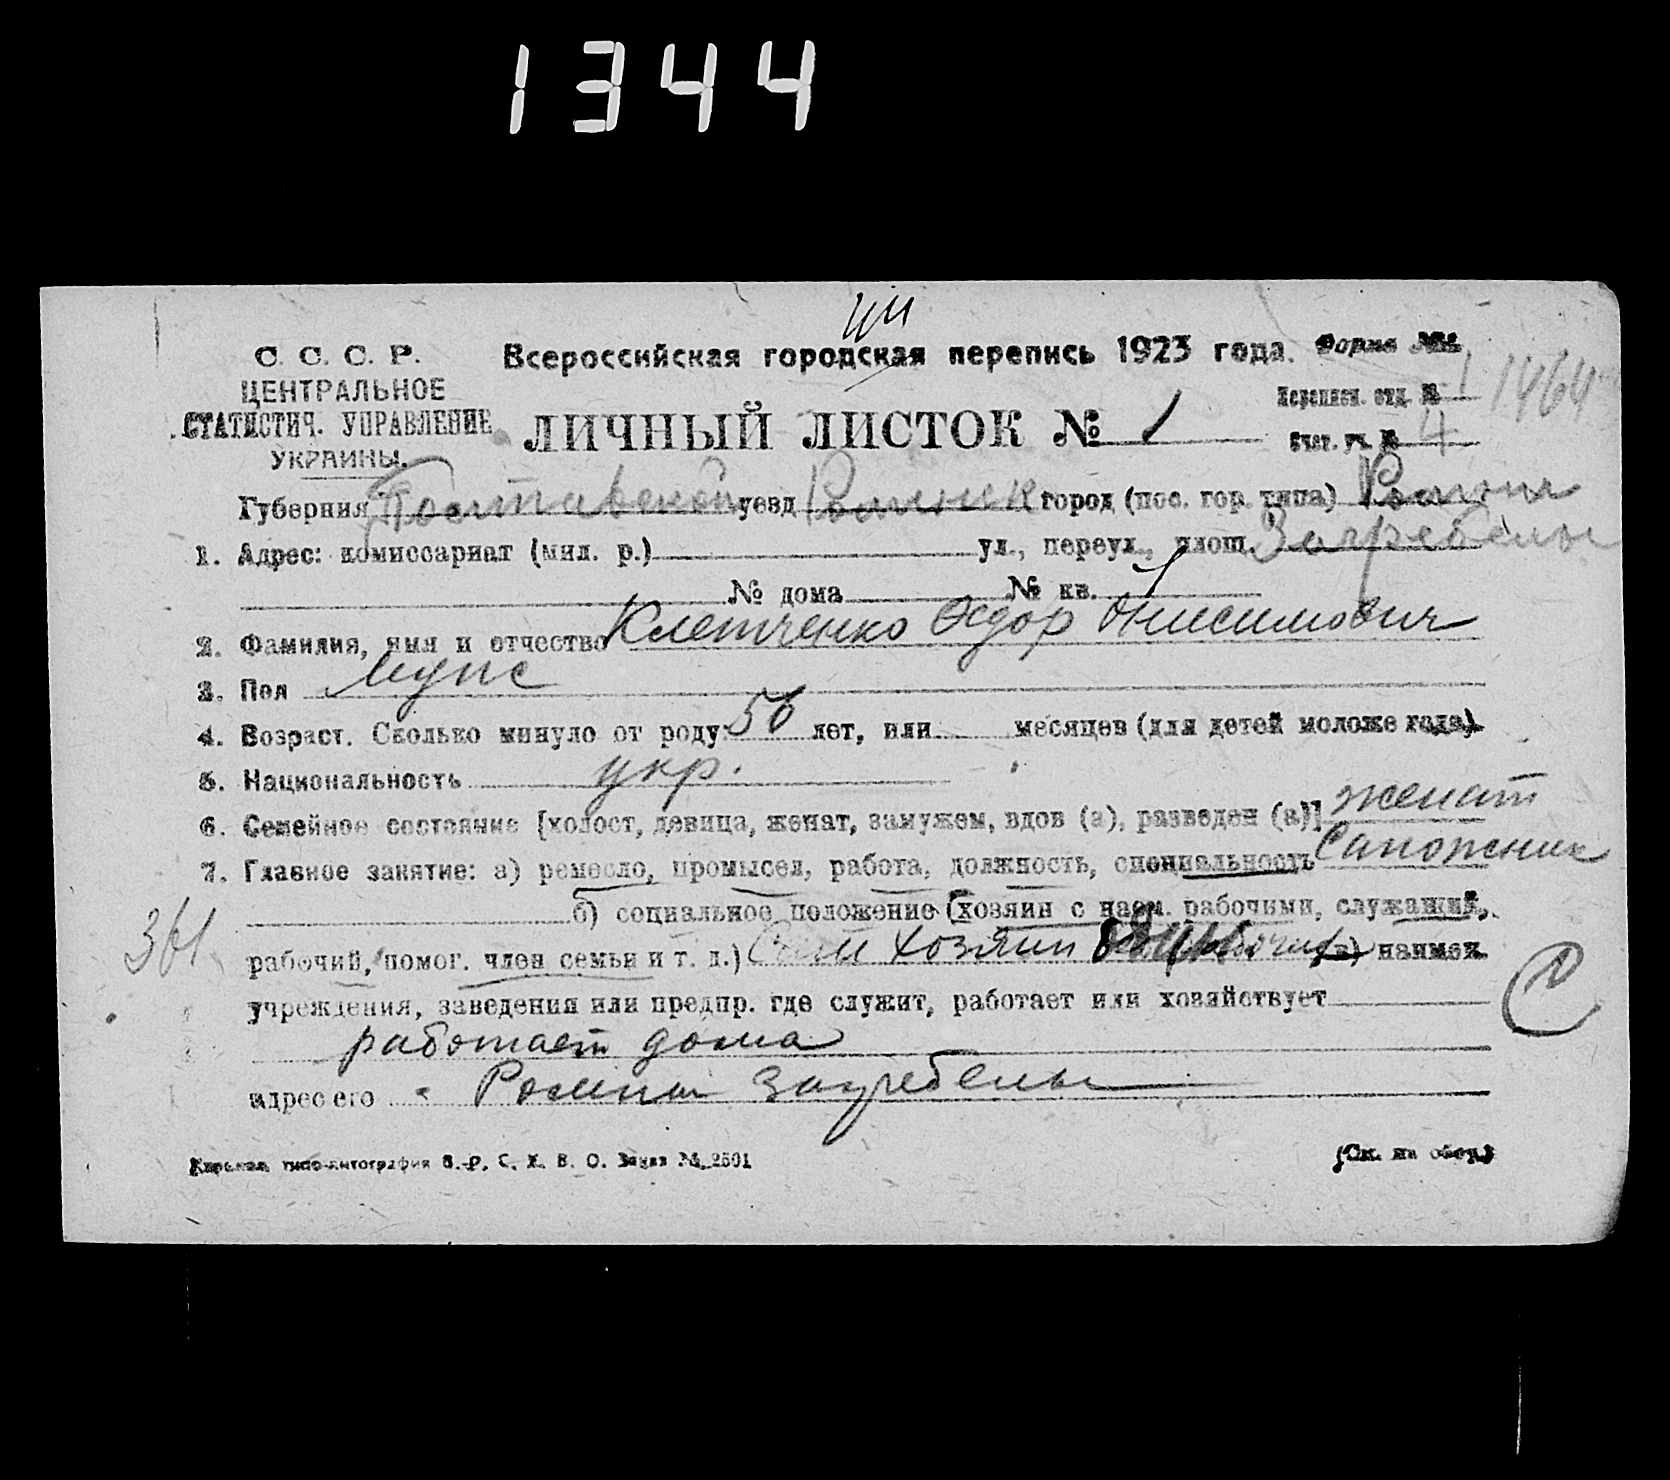 1344
ИИ
С. С. С. Р.
ЦЕНТРАЛЬНОЕ
СТАТИСТИЧ. УПРАВЛЕНИЕ
УКРАИНЫ.
Всероссийская городская перепись 1923 года. Форма №1
ЛИЧНЫЙ ЛИСТОК № 1
Переписн. отд. № 1 1464
Счет. уч. № 4
Губерния Полтавской уезд Роменск город (пос. гор. типа) Ромны
1. Адрес: комиссариат (мил. р.) ул., переул., площ. Загребелье
№ дома № кв.
2. Фамилия, имя и отчество Клетченко Федор Онисимович
3. Пол Мужс
4. Возраст. Сколько минуло от роду: 56 лет, или месяцев (для детей моложе года)
5. Национальность укр.
6. Семейное состояние [холост, девица, женат, замужем, вдов (а), разведен (а)] женат
7. Главное занятие: а) ремесло, промысел, работа, должность, специальность Сапожник
б) социальное положение (хозяин с наем. рабочими, служащий,
361
рабочий, помог. член семьи и т. д.) Сам хозяин в) наимен.
учреждения, заведения или предпр. где служит, работает или хозяйствует
работает дома
адрес его Ромны Загребелье
типо-литография В.-Р. С. Х. В. О. Заказ № 2501
(См. на обор.)